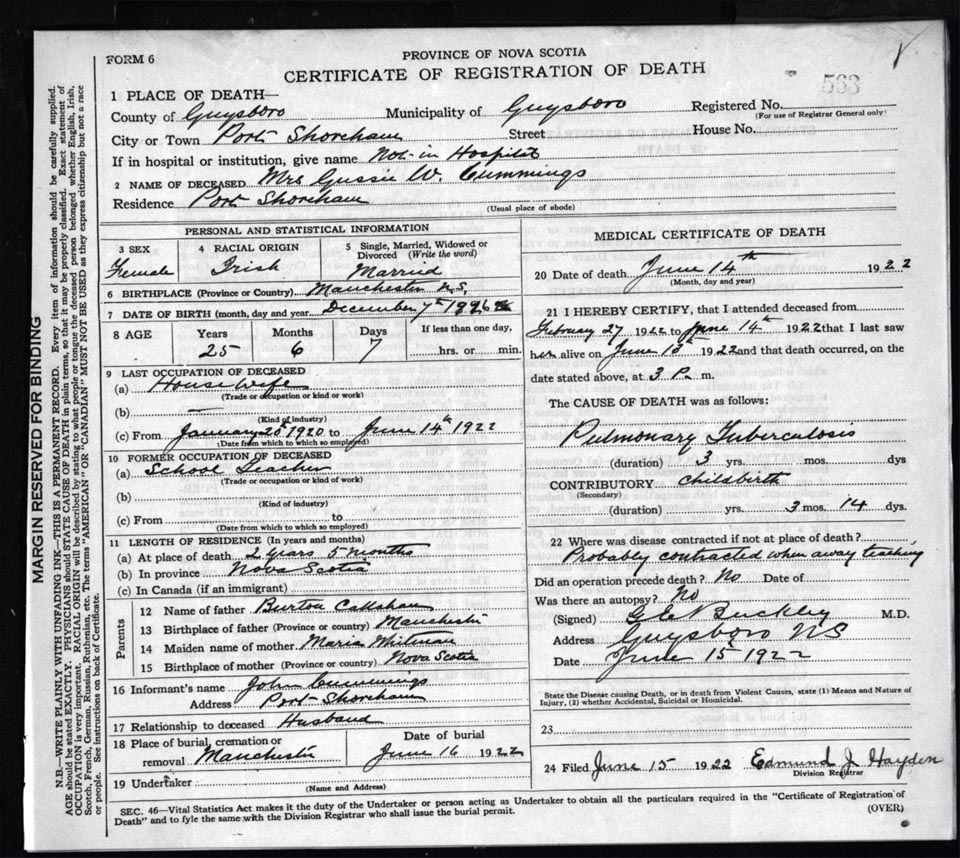 FORM 6
PROVINCE OF NOVA SCOTIA
CERTIFICATE OF REGISTRATION OF DEATH
563
1 PLACE OF DEATH—
County of Guysboro Municipality of Guysboro Registered No.
(For use of Registrar General only)
City or Town Port Shoreham Street House No.
If in hospital or institution, give name Not in Hospital
2 NAME OF DECEASED Mrs Gussie W. Cummings
Residence Port Shoreham
(Usual place of abode)
PERSONAL AND STATISTICAL INFORMATION
3 SEX Female
4 RACIAL ORIGIN Irish
5 Single, Married, Widowed or Divorced (Write the word) Married
6 BIRTHPLACE (Province or Country) Manchester N.S.
7 DATE OF BIRTH (month, day and year) December 7th 1896
8 AGE Years Months Days If less than one day,
25 6 7 hrs. or min.
9 LAST OCCUPATION OF DECEASED
(a) House wife
(Trade or occupation or kind or work)
(b) —
(Kind of industry)
(c) From January 20th 1920 to June 14th 1922
(Date from which to which so employed)
10 FORMER OCCUPATION OF DECEASED
(a) School Teacher
(Trade or occupation or kind of work)
(b)
(Kind of industry)
(c) From to
(Date from which to which so employed)
11 LENGTH OF RESIDENCE (In years and months)
(a) At place of death 2 Years 5 months
(b) In province Nova Scotia
(c) In Canada (if an immigrant)
Parents
12 Name of father Burton Callahan
13 Birthplace of father (Province or country) Manchester
14 Maiden name of mother Maria Whitman
15 Birthplace of mother (Province or country) Nova Scotia
16 Informant's name John Cummings
Address Port Shoreham
17 Relationship to deceased Husband
18 Place of burial, cremation or removal Manchester
Date of burial June 16 1922
19 Undertaker
(Name and Address)
MEDICAL CERTIFICATE OF DEATH
20 Date of death June 14th 1922
(Month, day and year)
21 I HEREBY CERTIFY, that I attended deceased from
February 27 1922 to June 14th 1922 that I last saw
her alive on June 1922 and that death occurred, on the
date stated above, at 3 P. m.
The CAUSE OF DEATH was as follows:
Pulmonary Tuberculosis
(duration) 3 yrs. mos. dys
CONTRIBUTORY Childbirth
(Secondary)
(duration) yrs. 3 mos. 14 dys.
22 Where was disease contracted if not at place of death?
Probably contracted when away teaching
Did an operation precede death? No Date of
Was there an autopsy? No
(Signed) G E Buckley M.D.
Address Guysboro NS
Date June 15 1922
State the Disease causing Death, or in death from Violent Causes, state (1) Means and Nature of
Injury, (2) whether Accidental, Suicidal or Homicidal.
23
24 Filed June 15 1922 Edmund J. Hayden
Division Registrar
SEC. 46—Vital Statistics Act makes it the duty of the Undertaker or person acting as Undertaker to obtain all the particulars required in the "Certificate of Registration of
Death" and to fyle the same with the Division Registrar who shall issue the burial permit. (OVER)
MARGIN RESERVED FOR BINDING
N.B.—WRITE PLAINLY WITH UNFADING INK—THIS IS A PERMANENT RECORD. Every item of information should be carefully supplied.
AGE should be stated EXACTLY. PHYSICIANS should STATE CAUSE OF DEATH in plain terms, so that it may be properly classified. Exact statement of
OCCUPATION is very important. RACIAL ORIGIN will be described by stating to what people or tongue the deceased person belonged whether English, Irish,
Scotch, French, German, Russian, Ruthenian, etc. The terms "AMERICAN" OR "CANADIAN" MUST NOT BE USED as they express citizenship but not a race
or people. See instructions on back of Certificate.